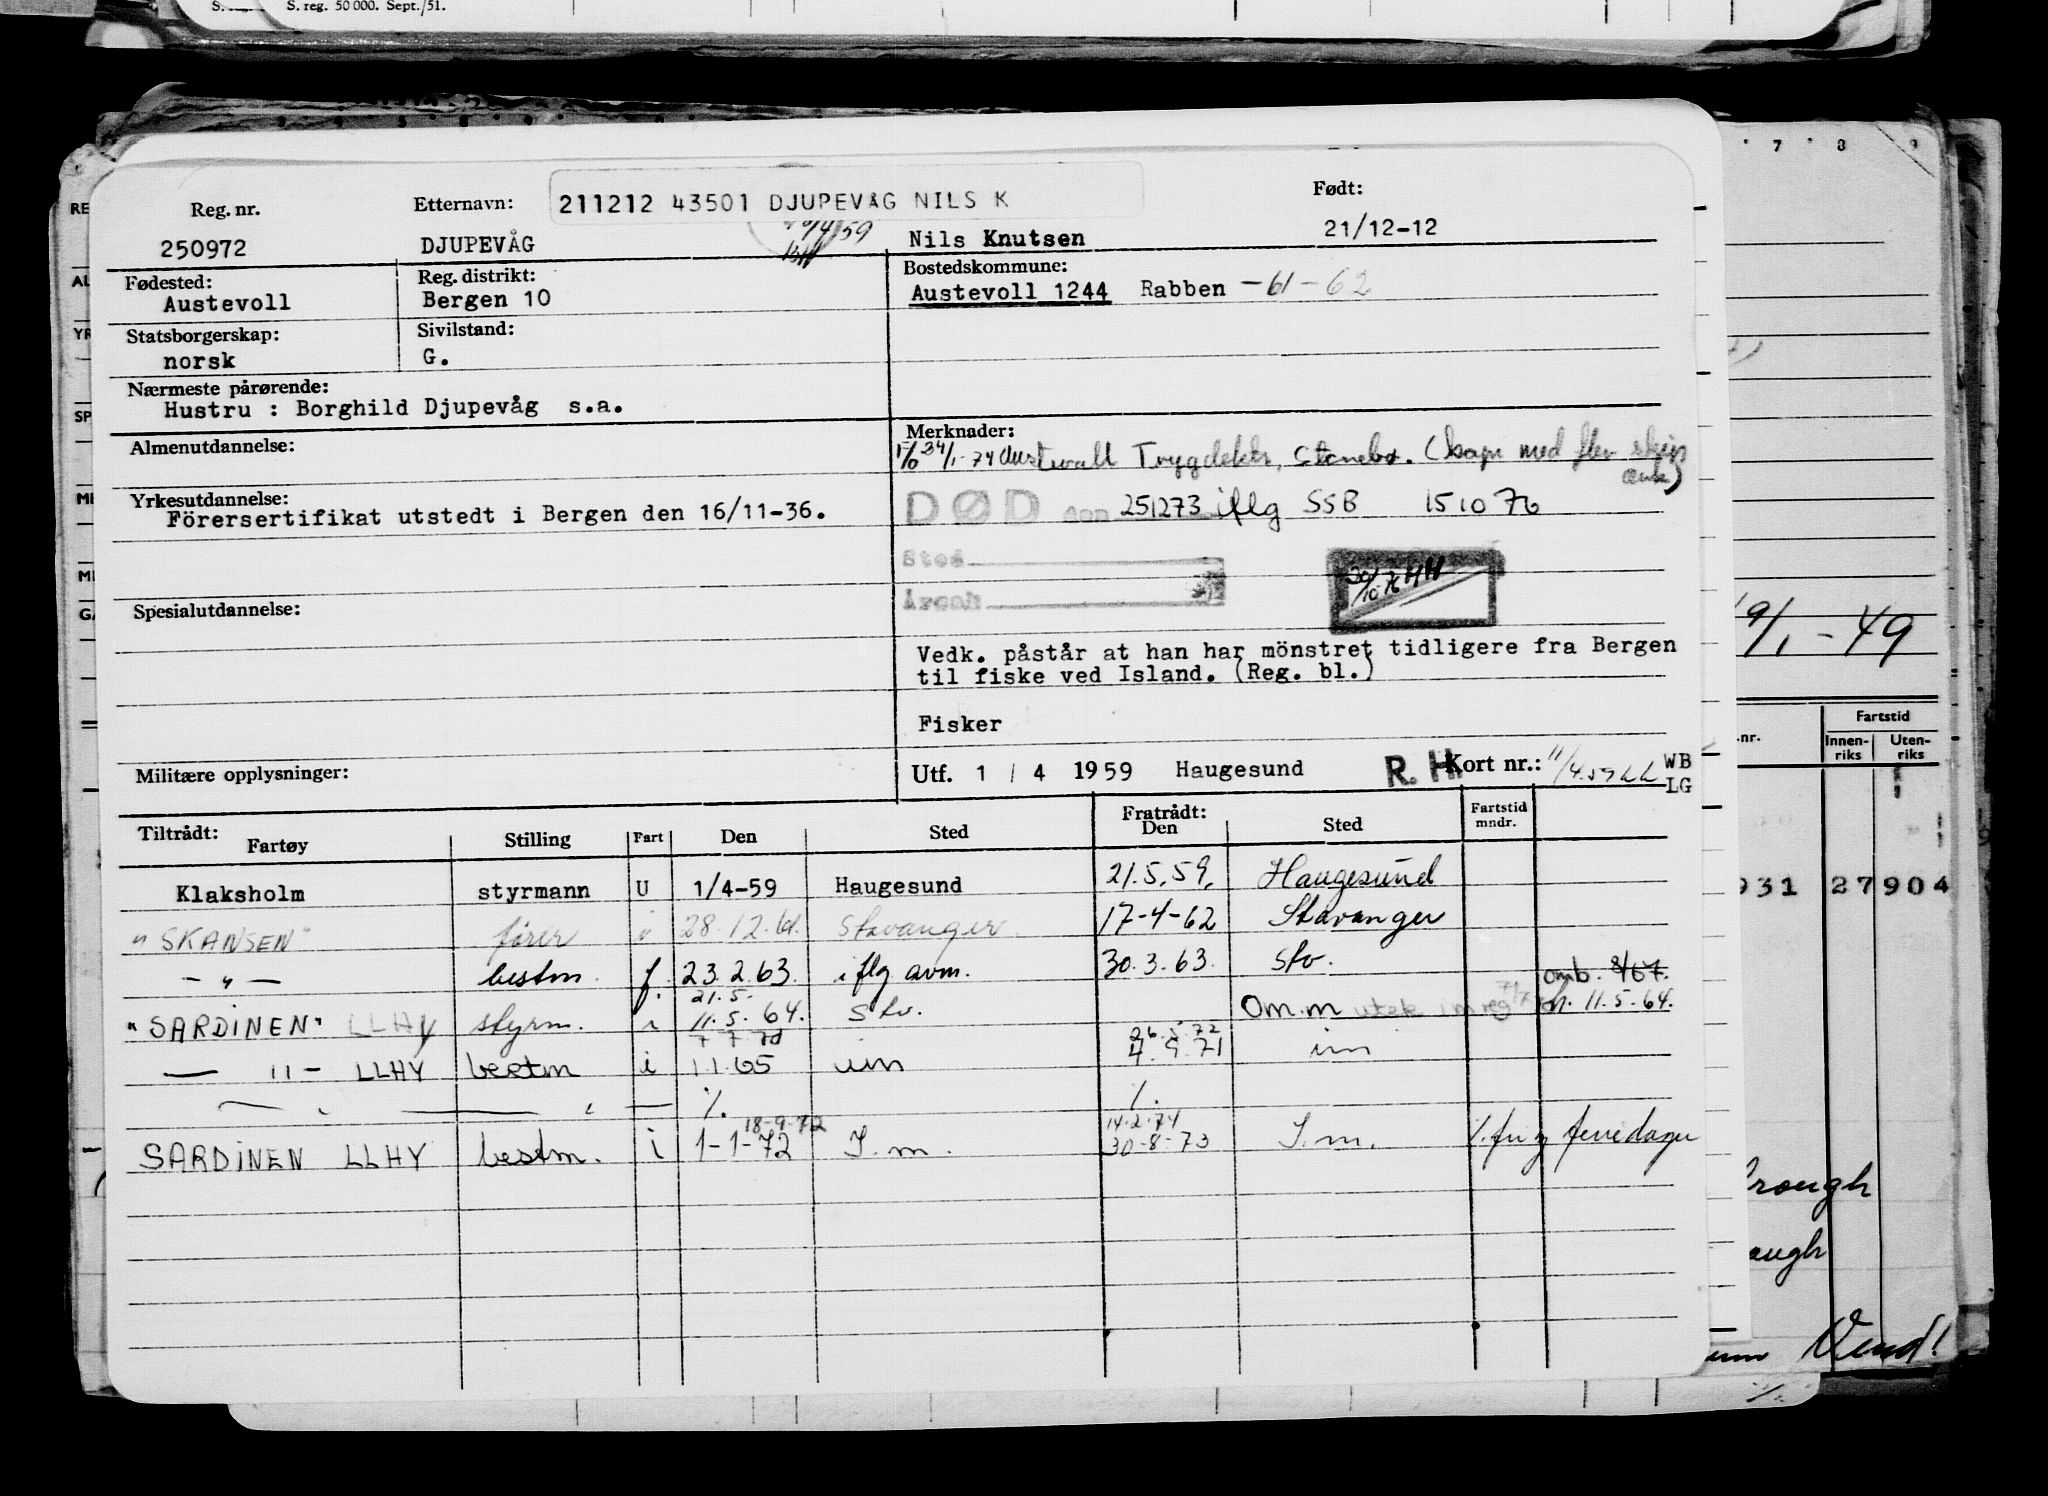 S. reg. 50 000. Sept./51.
7 8 9
Reg. nr.
Etternavn:
211212 43501 DJUPEVÅG NILS K
Født:
250972
DJUPEVÅG
Nils Knutsen
21/12-12
Fødested:
Austevoll
Reg. distrikt:
Bergen 10
Bostedskommune:
Austevoll 1244 Rabben -61-62
Statsborgerskap:
norsk
Sivilstand:
G.
Nærmeste pårørende:
Hustru : Borghild Djupevåg s.a.
Almenutdannelse:
Merknader:
Yrkesutdannelse:
Förersertifikat utstedt i Bergen den 16/11-36.
DØD den 251273 iflg SSB 15 10 76
Sted
Årsak
Spesialutdannelse:
Vedk. påstår at han har mönstret tidligere fra Bergen
til fiske ved Island. (Reg. bl.)
Fisker
Militære opplysninger:
Utf. 1 / 4 1959 Haugesund R. H. Kort nr.: WB
LG
Tiltrådt:
Fartøy Stilling Fart Den Sted
Fratrådt:
Den Sted
Fartstid
mndr.
Klaksholm styrmann U 1/4-59 Haugesund 21.5.59. Haugesund
"SKANSEN" fører 28.12.61. Stavanger 17-4-62 Stavanger
- " - bestm. f. 23.2.63. iflg avm. 30.3.63. Stv. omb. 8/67.
21.5.
"SARDINEN" LLHY styrm. i 11.5.64. Stv. Om.m 11.5.64.
26.5.72
— " - LLHY bestm i 1 1.65 im 4.9.71 im
18-9-72 14.2.74
SARDINEN LLHY bestm. i 1-1-72 I.m. 30-8-73 I.m.
9/1 - 49
nr.
Fartstid
Innen-
riks
Uten-
riks
931 27904
Vend!